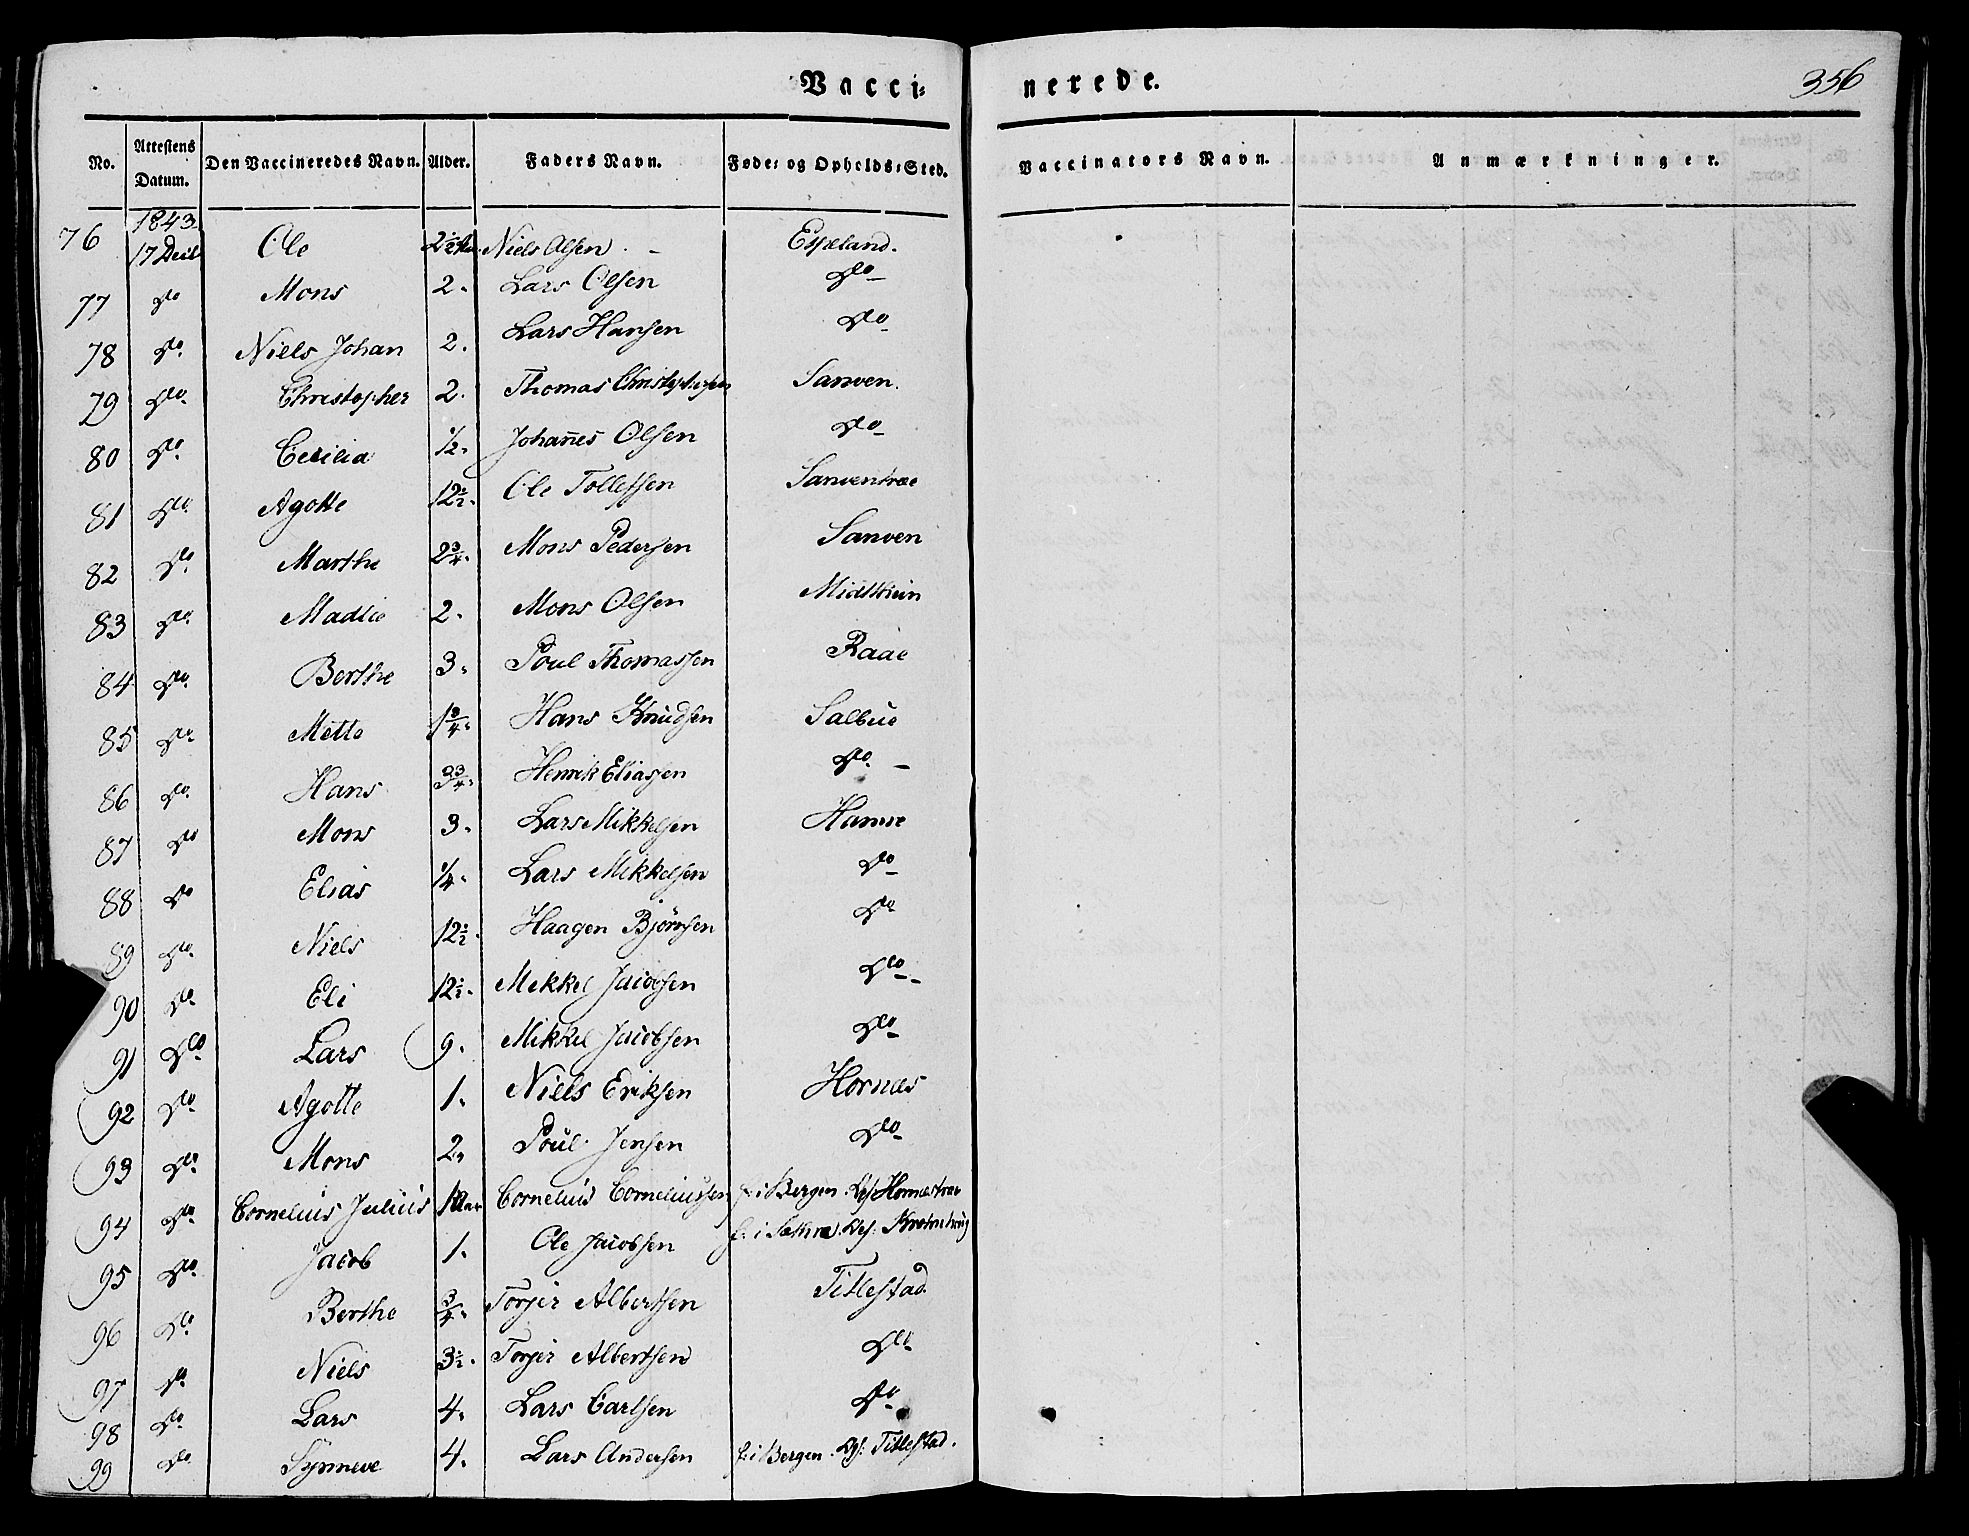 Vacci=
nerede.
356
No. Attestens Datum. Den Vaccineredes Navn. Alder. Faders Navn. Føde= og Opholds=Sted. Vaccinators Navn. Anmærkninger.
1843
76 17 Ole 2½ Niels Olsen Espeland.
77 Do Mons 2. Lars Olsen Do
78 Do Niels Johan 2. Lars Hansen Do
79 Do Christopher 2. Thomas Christophersen Sanven.
80 Do Cecilia ½. Johan̄es Olsen Do
81 Do Agotte 12½. Ole Tollefsen Sanventræe
82 Do Marthe 2¾. Mons Pedersen Sanven
83 Do Madlie 2. Mons Olsen
84 Do Berthe 3. Poul Thomassen Raae
85 Do Mette 1¾. Hans Knudsen Salbue
86 Do Hans 3¾. Henrik Eliassen Do
87 Do Mons 3. Lars Mikkelsen Hamre
88 Do Elias ¼. Lars Mikkelsen Do
89 Do Niels 12½. Haagen Bjørnsen Do
90 Do Eli 12½. Mikkel Jacobsen Do
91 Do Lars 9. Mikkel Jacobsen Do
92 Do Agotte 1. Niels Eriksen Hornæs
93 Do Mons 2. Poul Jensen Do
94 Do Cornelius Julius Cornelius Corneliussen f. i Bergen
95 Do Jacob 1. Ole Jacobsen
96 Do Berthe ¾. Torjer Albertsen Titlestad
97 Do Niels 3½. Torjer Albertsen Do
98 Do Lars 4. Lars Carlsen Do
99 Do Synneve 4. Lars Andersen f. i Bergen. Titlestad.